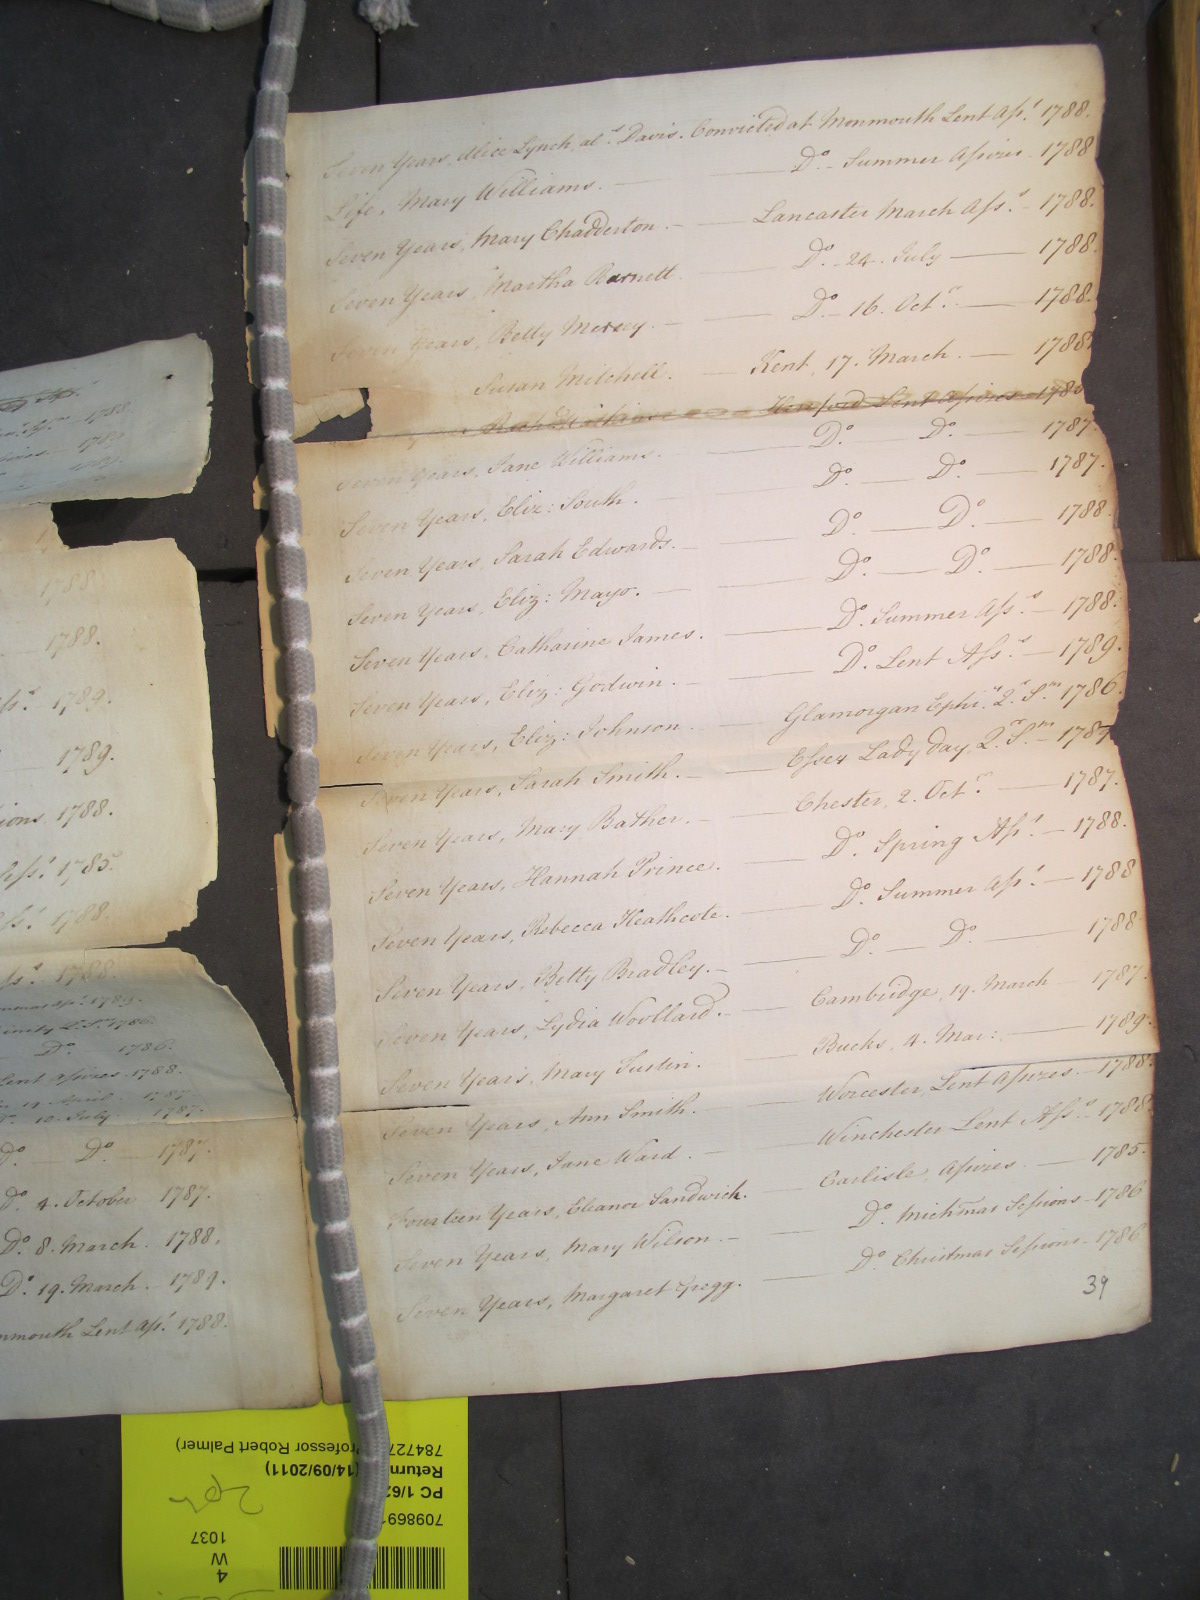 Seven Years, Alice Lynch, als. Davis. Convicted at Monmouth Lent Ass.s 1788.
Life, Mary Williams. — Do. Summer Assizes. 1788
Seven Years, Mary Chadderton. — Lancaster March Ass.s — 1788.
Seven Years, Martha Barnett. — Do. 24. July — 1788.
Seven Years, Betty Mersey. — Do. 16. Octr. — 1788.
Susan Mitchell. — Kent, 17. March. — 1788.
Hereford Lent Assizes
Seven Years, Jane Williams. — Do. Do. — 1787.
Seven Years, Eliz: South. — Do. — Do. — 1787.
Seven Years, Sarah Edwards. — Do. — Do. — 1788.
Seven Years, Eliz: Mayo. — Do. — Do. — 1788.
Seven Years, Catharine James. — Do. Summer Ass.s — 1788.
Seven Years, Eliz: Godwin. — Do. Lent Ass.s — 1789.
Seven Years, Eliz: Johnson — Glamorgan Ephi. Q.r S.ns 1786.
Seven Years, Sarah Smith. — Essex Lady day, Q.r S.ns — 1787
Seven Years, Mary Bather. — Chester, 2. Octr. — 1787.
Seven Years, Hannah Prince. — Do. Spring Ass.s — 1788.
Seven Years, Rebecca Heathcote. — Do. Summer Ass.s — 1788
Seven Years, Betty Bradley. — Do. — Do. — 1788
Seven Years, Lydia Woollard. — Cambridge, 19. March — 1787.
Seven Years, Mary Tustin. — Bucks, 4. Mar: — 1789.
Seven Years, Ann Smith. — Worcester, Lent Assizes — 1788.
Seven Years, Jane Ward. — Winchester Lent Ass.s — 1788.
Fourteen Years, Eleanor Sandwich. — Carlisle, Assizes. — 1785.
Seven Years, Mary Wilson. — Do. Michmas Sessions — 1786
Seven Years, Margaret Gregg. — Do. Christmas Sessions — 1786
39
1788
1788.
1789.
1789.
1788.
1785.
1788.
1788.
Do. 1786.
Lent Assizes. 1788.
19 April. 1787
10 July. 1787.
Do. Do. 1787.
Do. 4. October 1787.
Do. 8. March. 1788.
Do. 19. March. 1789.
nmouth Lent Ass.s 1788.
4
W
1037
709869
PC 1/6
Return (14/09/2011)
78472 Professor Robert Palmer)